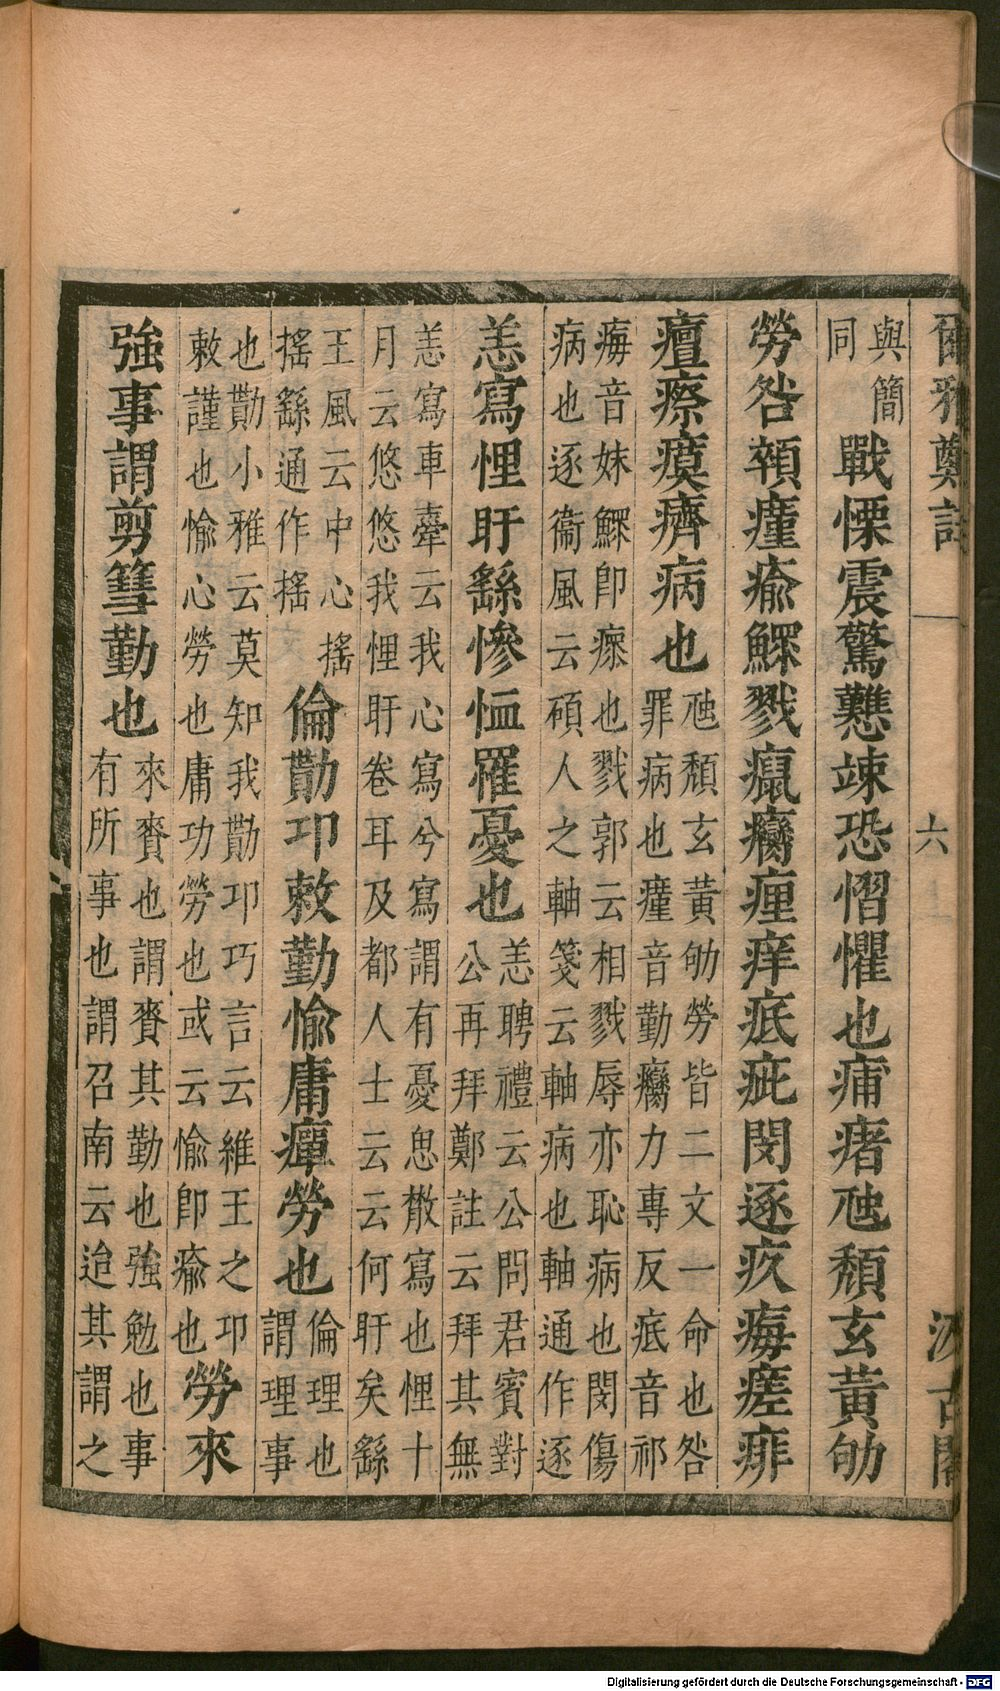 爾雅鄭註 六 汲古閣
與簡同 戰慄震驚戁竦恐慴懼也痡瘏虺頹玄黃劬
勞咎顇瘽瘉鰥戮癙癵瘇痒疷疵閔逐疚痗瘥痱
癉瘵瘼癠病也 虺頹玄黃劬勞皆二文一命也咎罪病也瘽音勤癵力專反疷音祁
痗音妹鰥卽瘝也戮郭云相戮辱亦恥病也閔傷病也逐衞風云碩人之軸箋云軸病也軸通作逐
恙寫悝盱繇慘恤罹憂也 恙聘禮云公問君賓對公再拜鄭註云拜其無
恙寫車舝云我心寫兮寫謂有憂思散寫也悝十月云悠悠我悝盱卷耳及都人士云云何盱矣繇
王風云中心搖搖繇通作搖 倫勩卭敕勤愉庸癉勞也 倫理也謂理事
也勩小雅云莫知我勩卭巧言云維王之卭敕謹也愉心勞也庸功勞也或云愉卽瘉也 勞來
強事謂剪篲勤也 來賚也謂賚其勤也強勉也事有所事也謂召南云迨其謂之
Digitalisierung gefördert durch die Deutsche Forschungsgemeinschaft - DFG